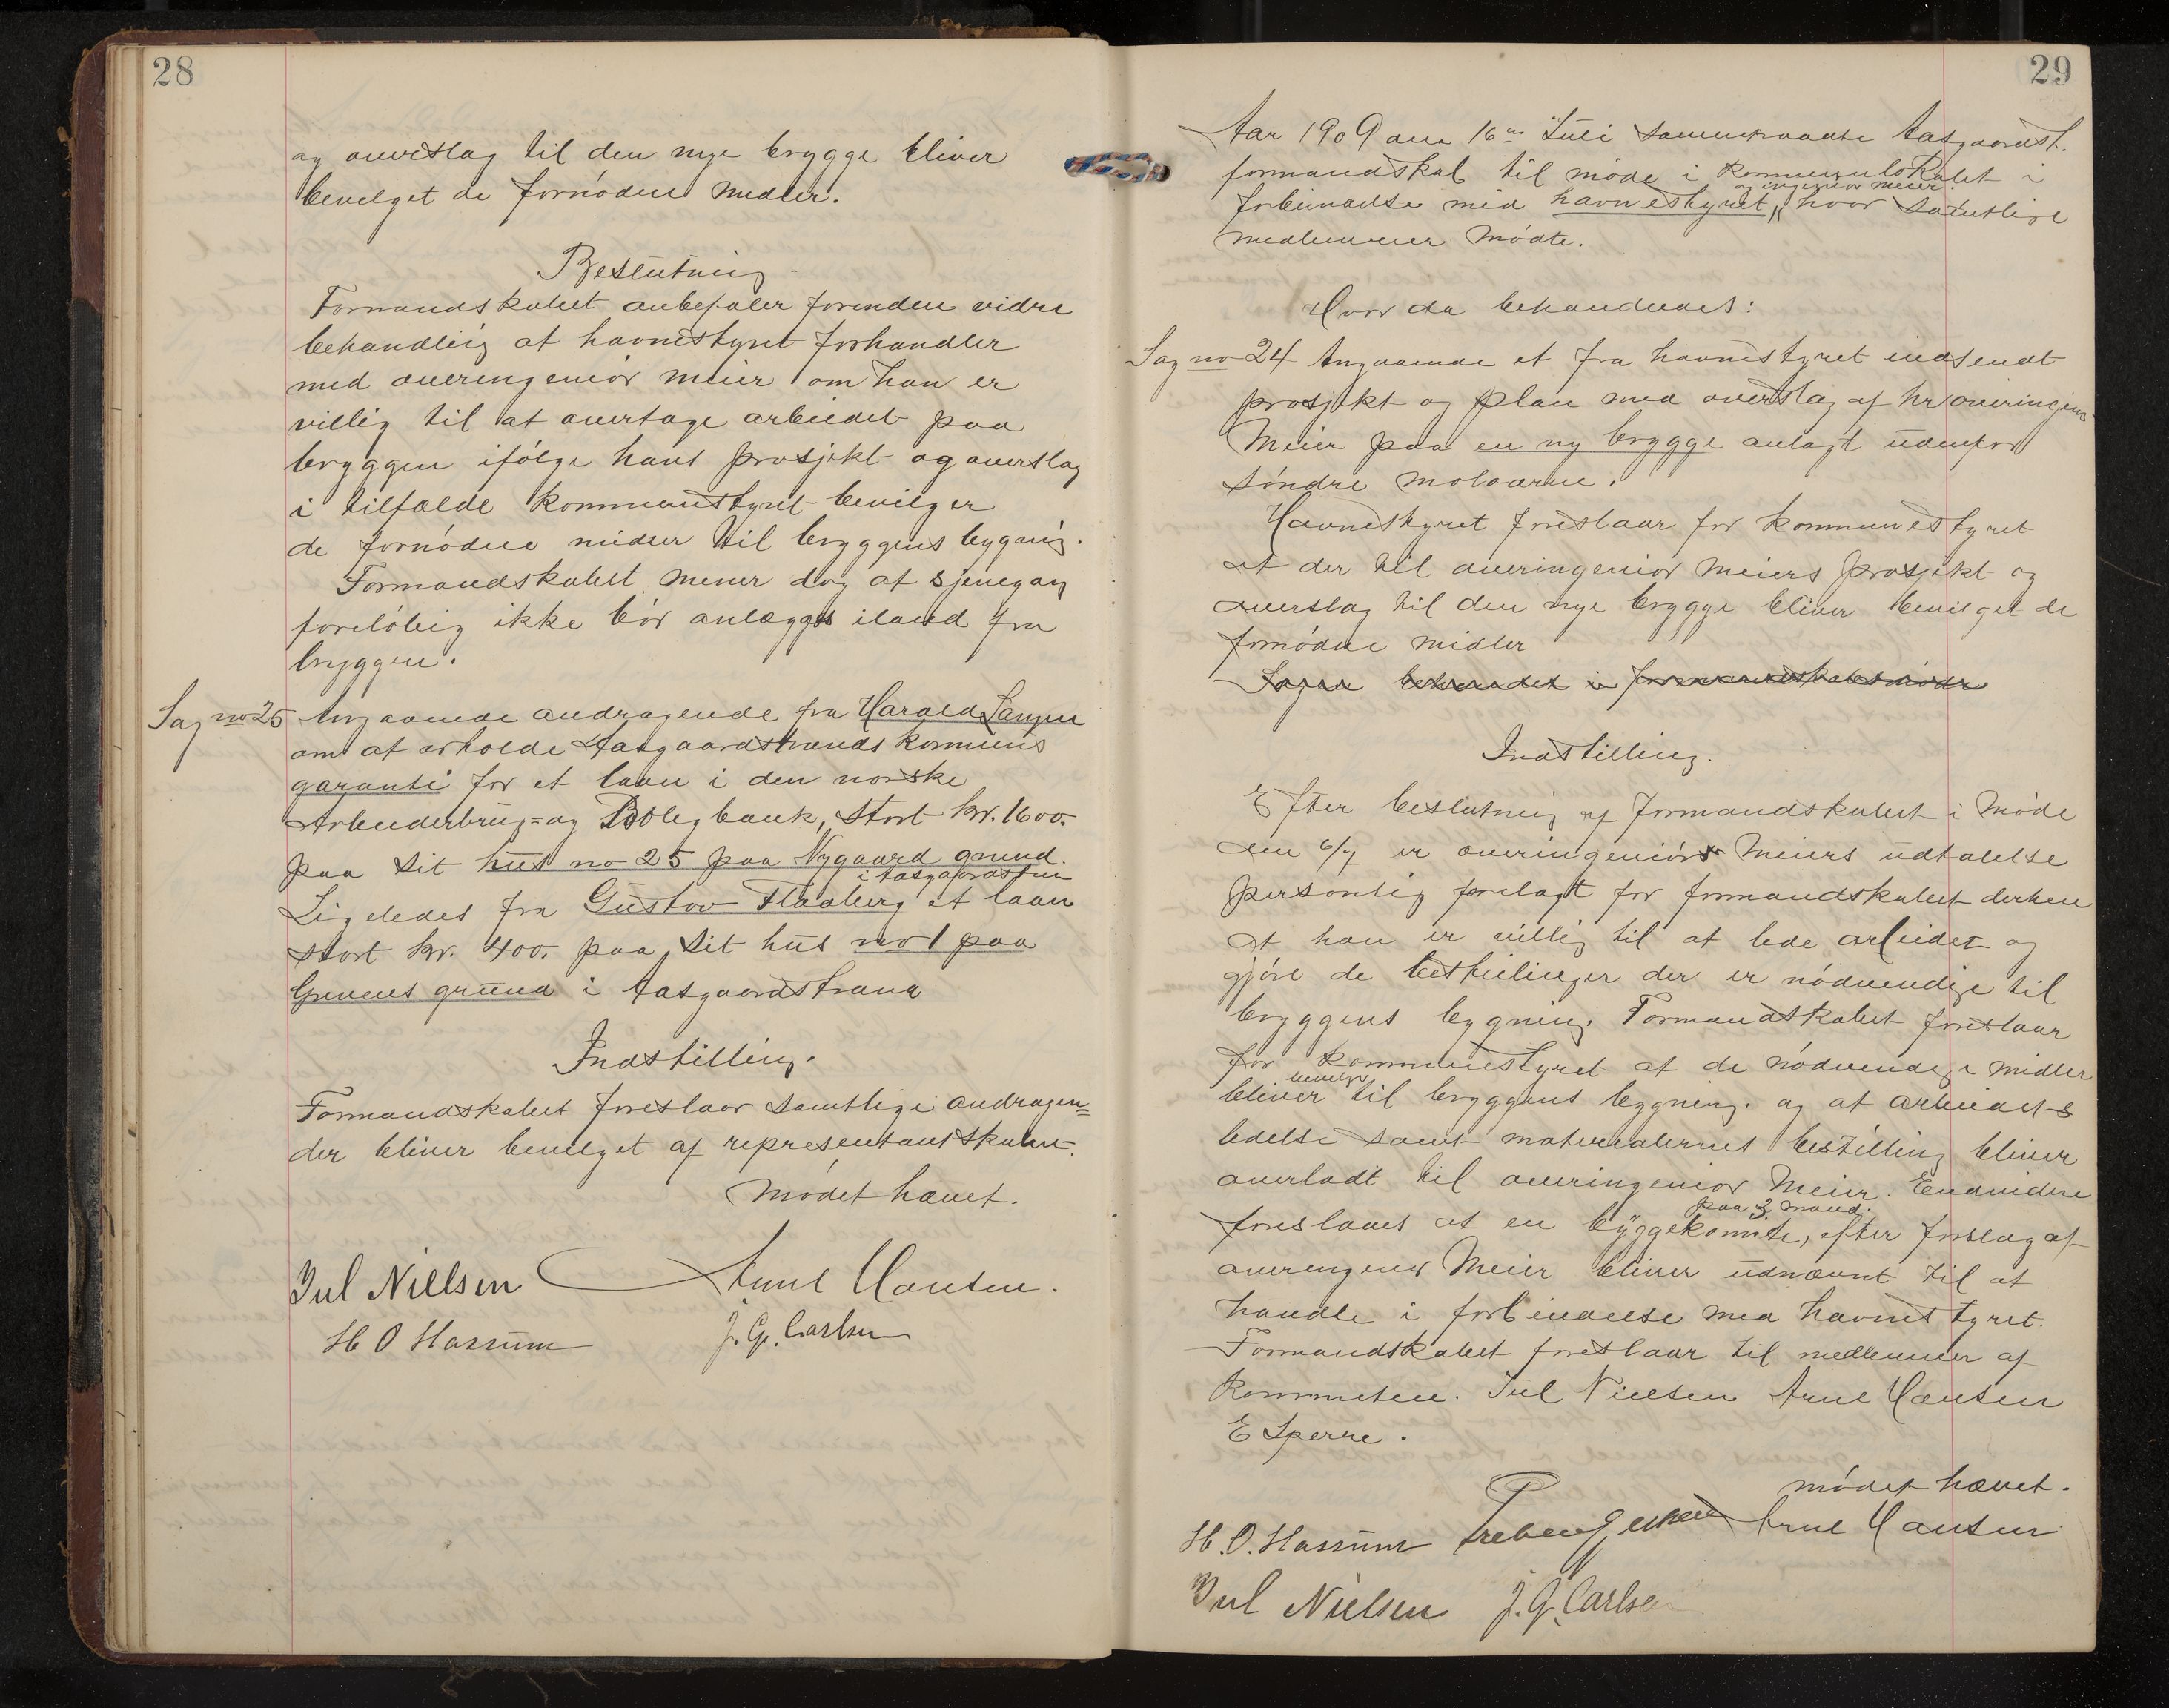 28
og overslag til den nye brygge bliver
bevelget de fornødne midler.
Beslutning
Formandskabet anbefaler forinden vidre
behandling at havnestyret forhandler
med overingeniør Meier om han er
villig til at overtage arbeidet paa
bryggen ifølge hans prosjekt og overslag
i tilfælde kommunestyret bevilger
de fornødne midler til bryggens bygning.
Formandskabet mener dog at sjenegang
foreløbig ikke bør anlægges iland fra
bryggen.
Sag no 25 Angaaende andragende fra Harald Langen
om at erholde Aasgaardstrands kommunes
garanti for et laan i den norske
Arbeiderbrug= og Boligbank, stort kr. 1600.
paa sit hus no 25 paa Nygaard grund.
i Aasgaardstran
Ligeledes fra Gustav Fladberg et laan
stort kr. 400. paa sit hus no 1 paa
Grenens grund i Aasgaardstrand
Indstilling.
Formandskabet foreslaar samtlige andragen=
der bliver bevilget af representantskabet.
Mødet hævet.
Jul Nielsen Arne Hansen.
H O Hassum J. G. Carlsen
29
Aar 1909 den 16de Juli sammentraadte Aasgaardst.
formandskab til møde i Kommunelokalet i
og ingeniør Meier
forbindelse med havnestyret, hvor samtlige
medlemmer mødte.
Hvor da behandledes:
Sag no 24 Angaaende et fra havnestyret indsendt
prosjekt og plan med overslag af hr overingeniør
Meier paa en ny brygge anlagt udenfor
søndre moloarm.
Havnestyret foreslaar for kommunestyret
at der til overingeniør Meiers prosjekt og
overslag til den nye brygge bliver bevilget de
fornødne midler
Sagen behandlet i formandskabsmøde
Indstilling.
Efter beslutning af formandskabet i møde
den 6/7 er overingeniør Meiers udtalelse
personlig forelagt for formandskabet derhen
at han er villig til at lede arbeidet og
gjøre de bestillinger der er nødvendige til
bryggens bygning. Formandskabet foreslaar
for kommunestyret at de nødvendige midler
bevilget
bliver til bryggens bygning. og at arbeidets
ledelse samt materialernes bestilling bliver
overladt til overingeniør Meier. Endvidere
paa 3 mand.
foreslaaes at en byggekomite, efter forslag af
overingeniør Meier bliver udnævnt til at
handle i forbindelse med havnestyret.
Formandskabet foreslaar til medlemmer af
Kommiteen. Jul Nielsen Arne Hansen
E Sperre.
mødet hævet.
H. O. Hassum Arne Hansen
Jul Nielsen J. G. Carlsen